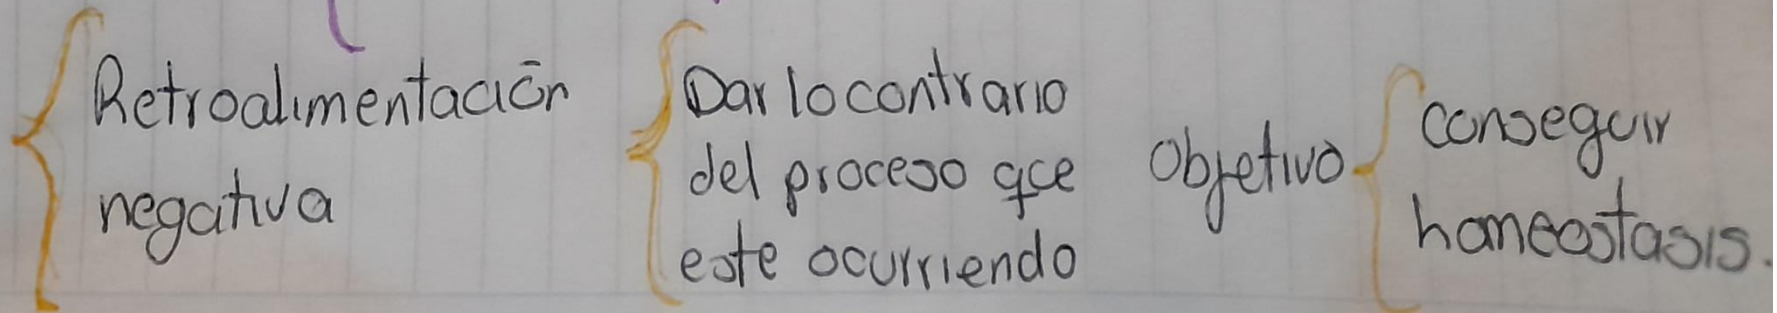 Retroalimentación
negativa
Dar lo contrario
del proceso que
este ocurriendo
Objetivo
conseguir
homeostasis.